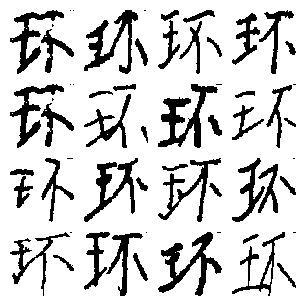 环环环环
环环环环
环环环环
环环环环